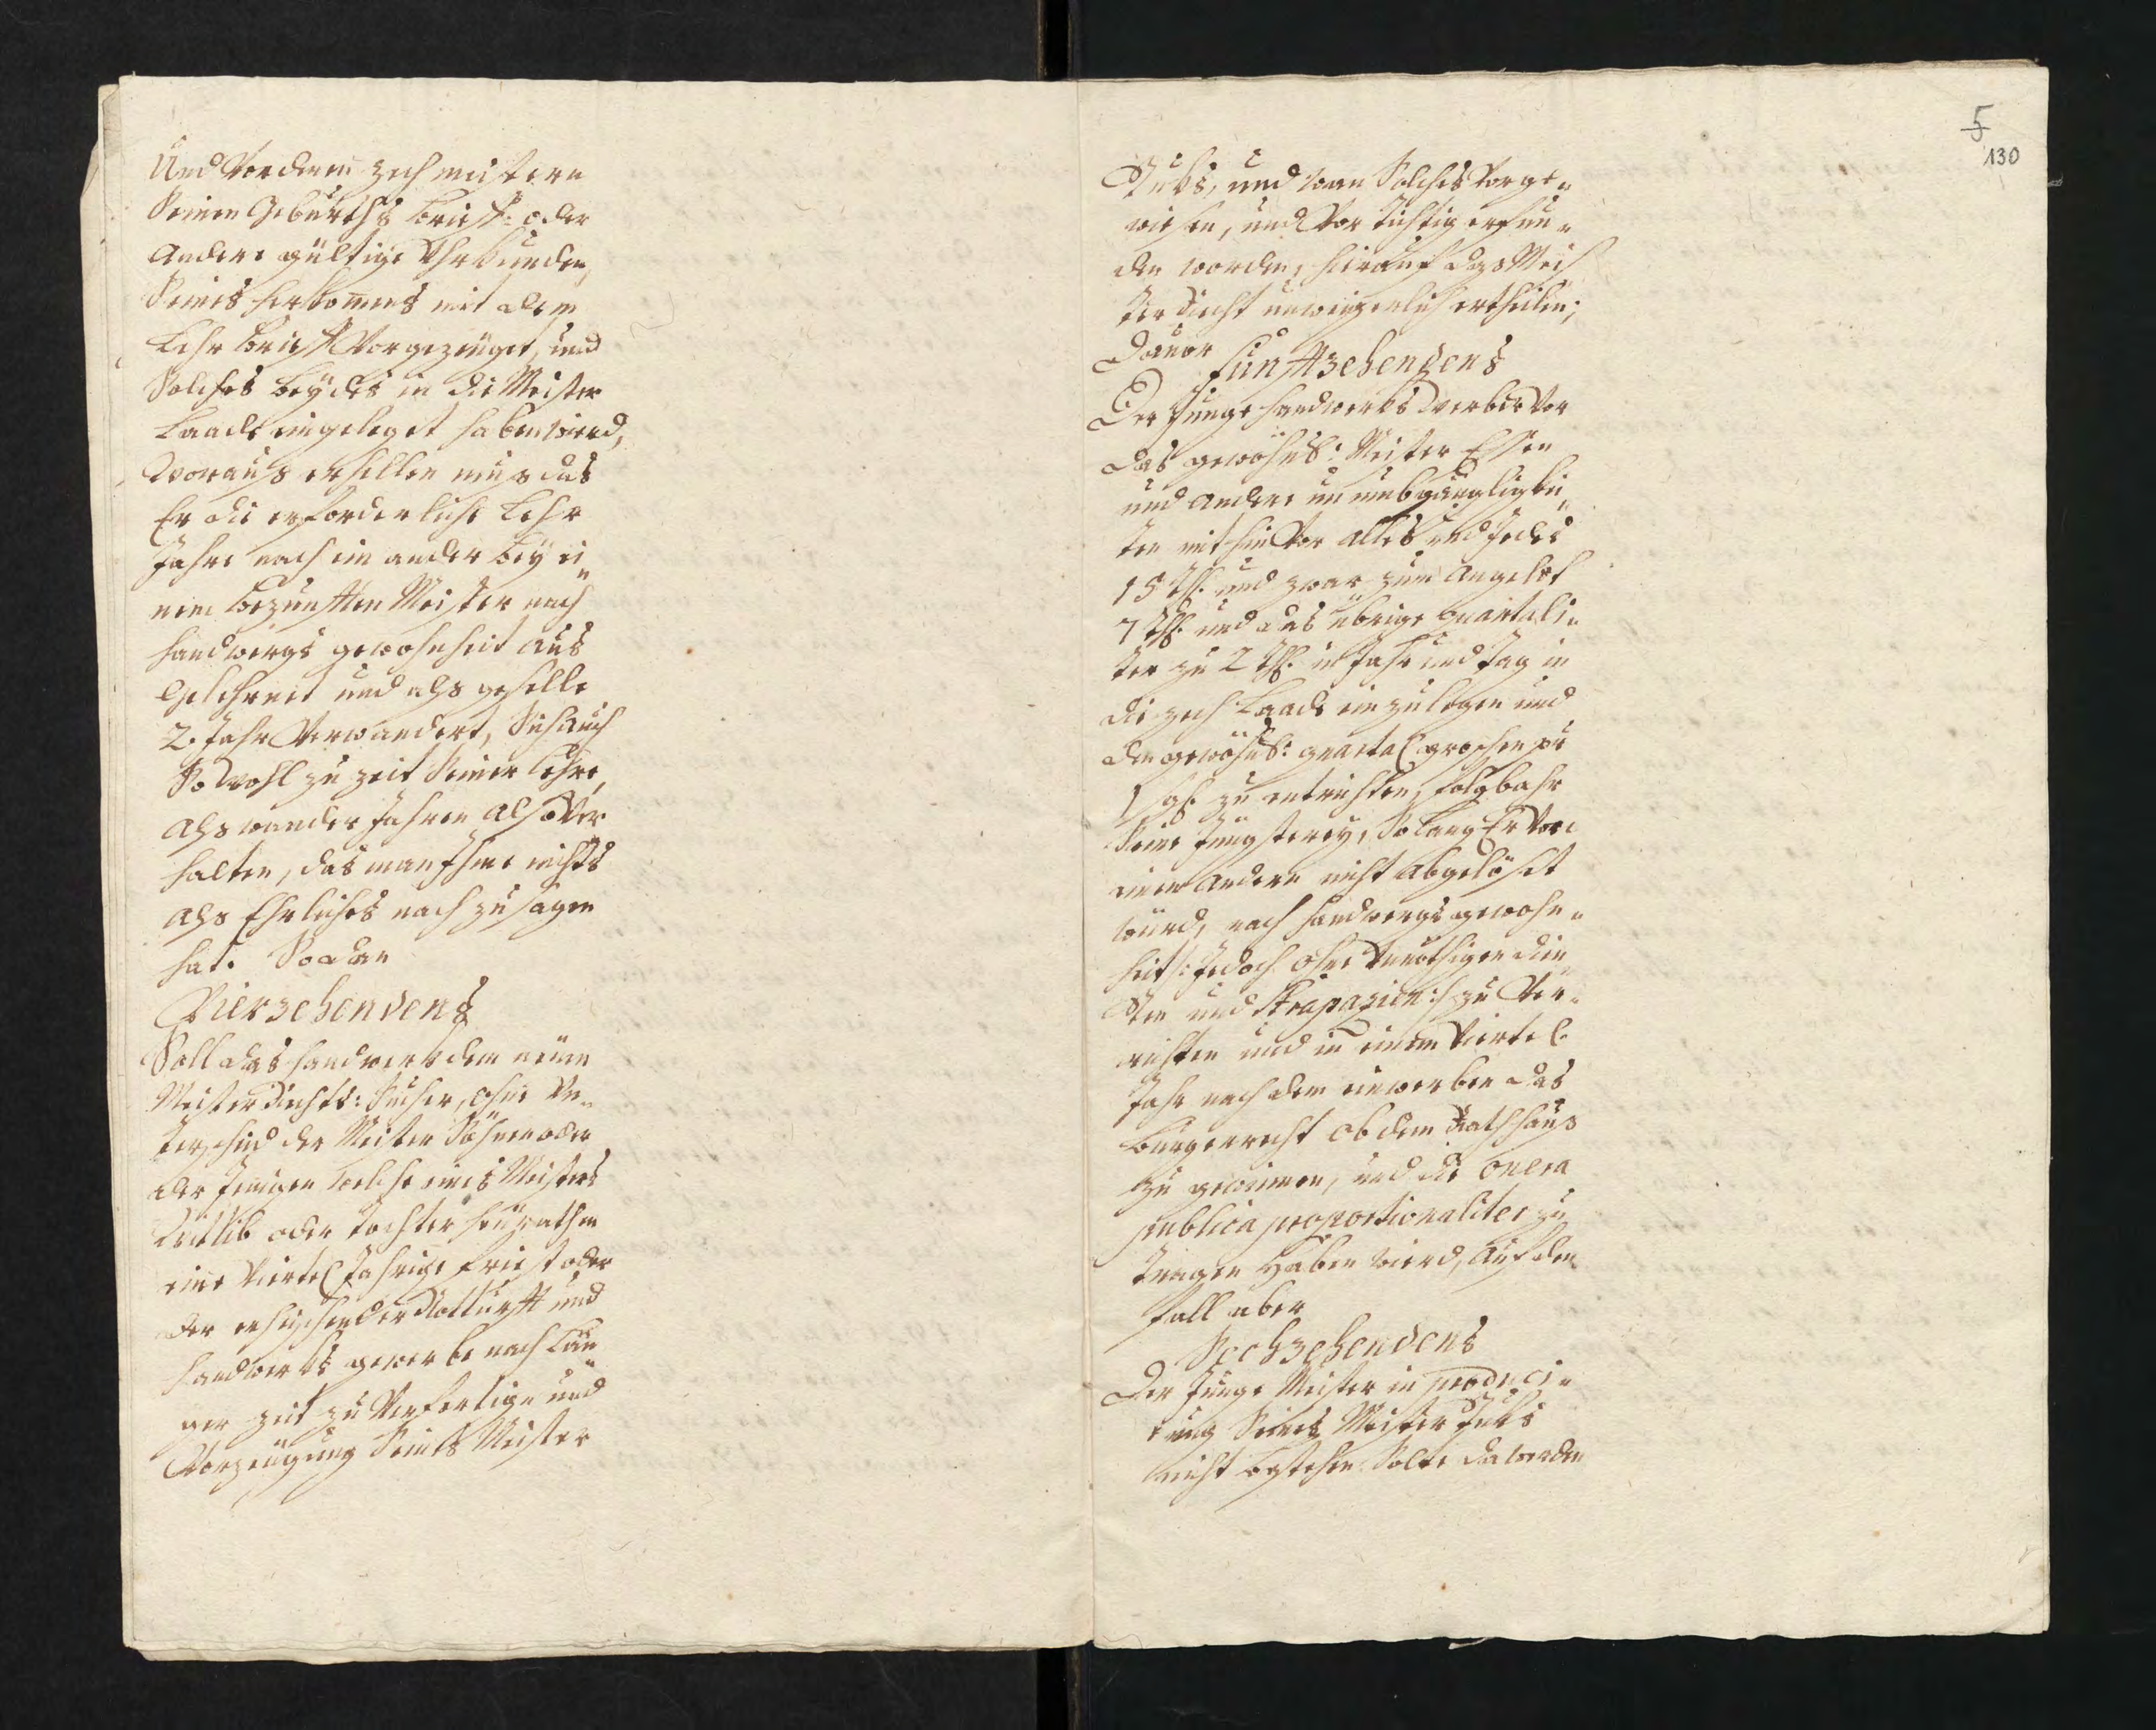 Und Vor denen zech meistern
Seinen Geburths brieff: oder
andere gültige Uhrkunden,
Seines herkomens mit dem
Lehr brieff Vorgezeuget, und
Solches beÿdes in die Meister
Laade eingeleget haben wird,
Woraus erhellen mus das
Er die erforderliche Lehr
Jahre nach einander beÿ ei„
nem bezunfften Meister nach
handwergs gewohnheit aus
Gelehrnet und als geselle
2. Jahr Verwandert, Sich auch
So wohl zu zeit Seiner Lehr„
als wander Jahren also Ver
halten, das man Ihme nichts
als Ehrliches nach zu sagen
hat. So dan
Vierzehendens
Soll das handwerk dem neuen
Meister Recht: Sucher, ohne Un„
terschied der Meister Söhnen oder
der Jenigen welche eines Meisters
Wittib oder Tochter heurathen
eine Viertel Jahrige Friest oder
der erheischender Notturfft und
handwerks gewerbe nach Län„
ger zeit zu Verfertige und
Vorzeugung Seines Meister
5
130
Stuks, und wan Solches Vorge„
wiesen, und Vor tüchtig erfun„
den worden, hierauf das Meis
ter Recht unweigerlich ertheilen;
Davor
Funffzehendens
Der Junge handwerks werber Vor
das gewöhnl: Meister Essen
und andere unumbgänglichkei„
ten mit hin Vor alles und Jedes
15 Th. und zwar zum angeld
7 Th. und das übrige quartali„
ter zu 2 Th. in Jahr und Tag in
die zech Laade ein zu legen und
den gewöhnl: quartal groschen pr
1 sgl. zu entrichten, folgbahr
Seine Jüngsterey, So Lang Er Von
einem andern nicht abgelöset
wird, nach handwergs gewohn„
heit /: Jedoch ohne Unnöthigen Dien„
sten und Strapazien :/ zu Ver„
richten und in einem Viertel
Jahr nach dem einwerben das
burgerrecht ob dem Rathhaus
zu gewinnen, und die onera
publica proportionaliter zu
Tragen haben wird, Auf den
fall aber
Sechzehendens
Der Junge Meister in produci„
rung Seines Meister Stuks
nicht bestehen Solte da werden